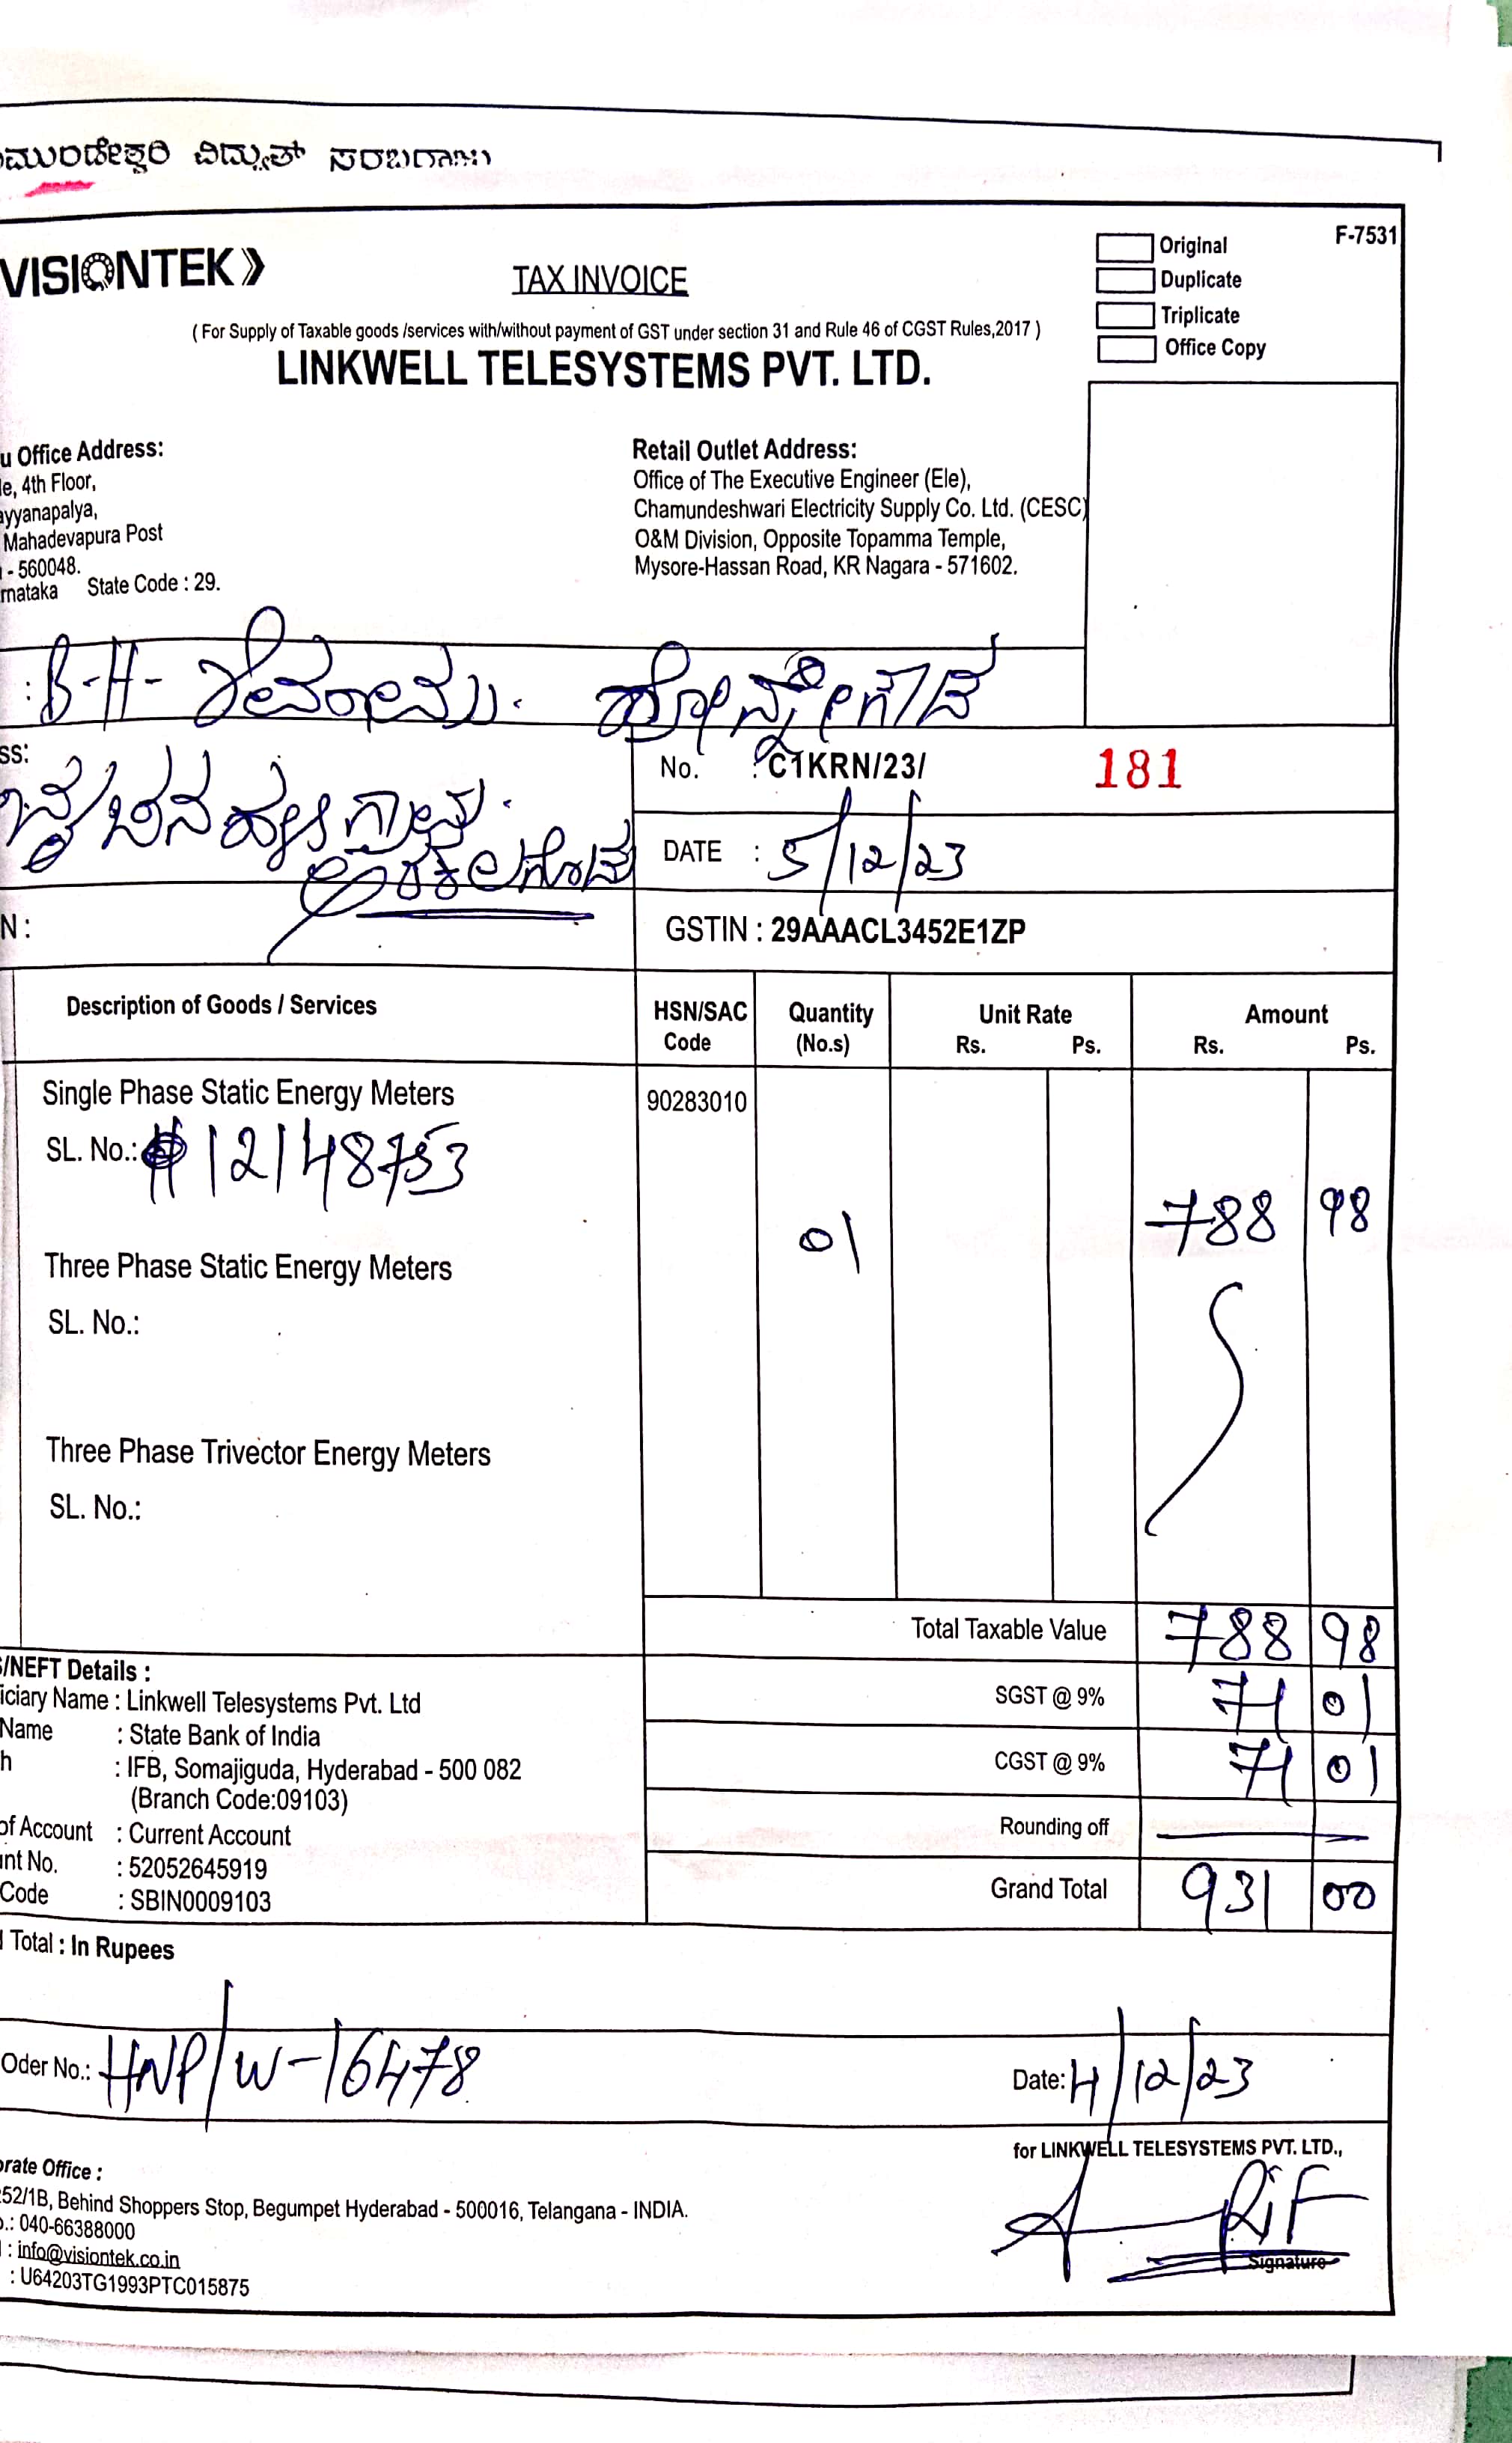 ಮುಂಡೇಶ್ವರಿ ವಿದ್ಯುತ್ ಸರಬರಾಜು
VISIONTEK
TAX INVOICE
Original
Duplicate
Triplicate
Office Copy
F-7531
( For Supply of Taxable goods /services with/without payment of GST under section 31 and Rule 46 of CGST Rules,2017 )
LINKWELL TELESYSTEMS PVT. LTD.
u Office Address:
le, 4th Floor,
ayyanapalya,
Mahadevapura Post
- 560048.
rnataka State Code : 29.
Retail Outlet Address:
Office of The Executive Engineer (Ele),
Chamundeshwari Electricity Supply Co. Ltd. (CESC)
O&M Division, Opposite Topamma Temple,
Mysore-Hassan Road, KR Nagara - 571602.
: B-H-
ss:
No. : C1KRN/23/ 181
DATE : 5/12/23
N :
GSTIN : 29AAACL3452E1ZP
Description of Goods / Services HSN/SAC Code Quantity (No.s) Unit Rate Rs. Ps. Amount Rs. Ps.
Single Phase Static Energy Meters 90283010
SL. No.: 12148753
01 788 98
Three Phase Static Energy Meters
SL. No.:
Three Phase Trivector Energy Meters
SL. No.:
Total Taxable Value 788 98
SGST @ 9% 71 01
CGST @ 9% 71 01
Rounding off
Grand Total 931 00
S/NEFT Details :
iciary Name : Linkwell Telesystems Pvt. Ltd
Name : State Bank of India
h : IFB, Somajiguda, Hyderabad - 500 082
(Branch Code:09103)
of Account : Current Account
nt No. : 52052645919
Code : SBIN0009103
Total : In Rupees
Oder No.: HNP/W-16478
Date: 4/12/23
for LINKWELL TELESYSTEMS PVT. LTD.,
Signature
orate Office :
52/1B, Behind Shoppers Stop, Begumpet Hyderabad - 500016, Telangana - INDIA.
o.: 040-66388000
: info@visiontek.co.in
: U64203TG1993PTC015875